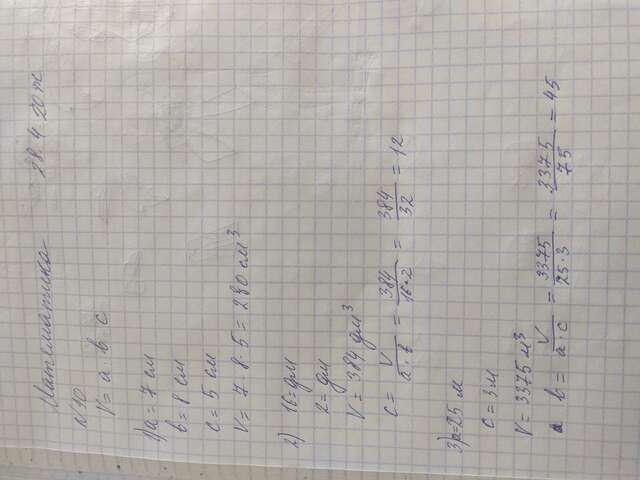 Математика 28.4.20
N 10
V = a b c
1) a = 7 см
b = 8 см
c = 5 см
V = 7 · 8 · 5 = 280 см³
2) 16 = дм
2 = дм
V = 384 дм³
c = V / a · b = 384 / 16 · 2 = 384 / 32 = 12
3) a = 25 м
c = 3 м
V = 3375 м³
b = V / a · c = 3375 / 25 · 3 = 3375 / 75 = 45